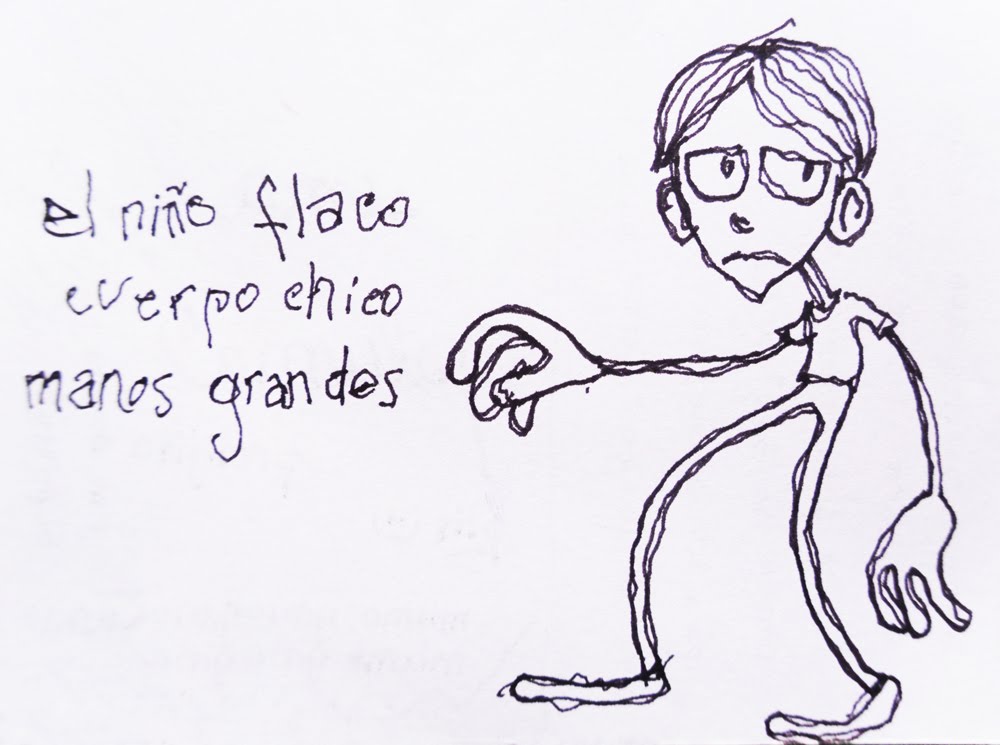 el niño flaco
cuerpo chico
manos grandes